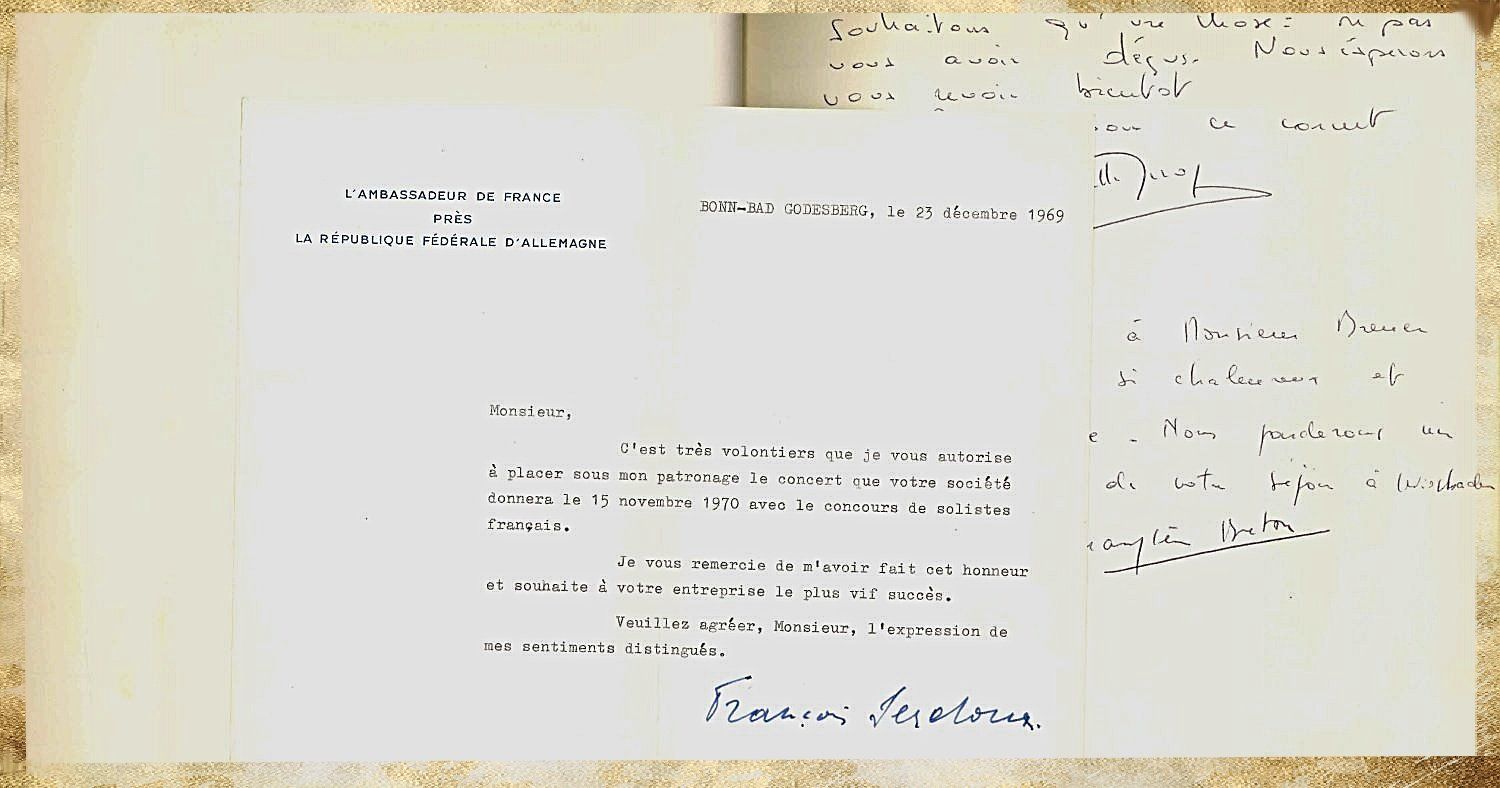 souhaitons qu'une chose: ne pas
vous avoir déçus. Nous espérons
vous revoir bientôt
ce
L'AMBASSADEUR DE FRANCE
PRÈS
LA RÉPUBLIQUE FÉDÉRALE D'ALLEMAGNE
BONN-BAD GODESBERG, le 23 décembre 1969
à Monsieur
si chaleureux et
e - Nous garderons un
de votre séjour à Wiesbaden
Breton
Monsieur,
C'est très volontiers que je vous autorise
à placer sous mon patronage le concert que votre société
donnera le 15 novembre 1970 avec le concours de solistes
français.
Je vous remercie de m'avoir fait cet honneur
et souhaite à votre entreprise le plus vif succès.
Veuillez agréer, Monsieur, l'expression de
mes sentiments distingués.
François Seydoux.